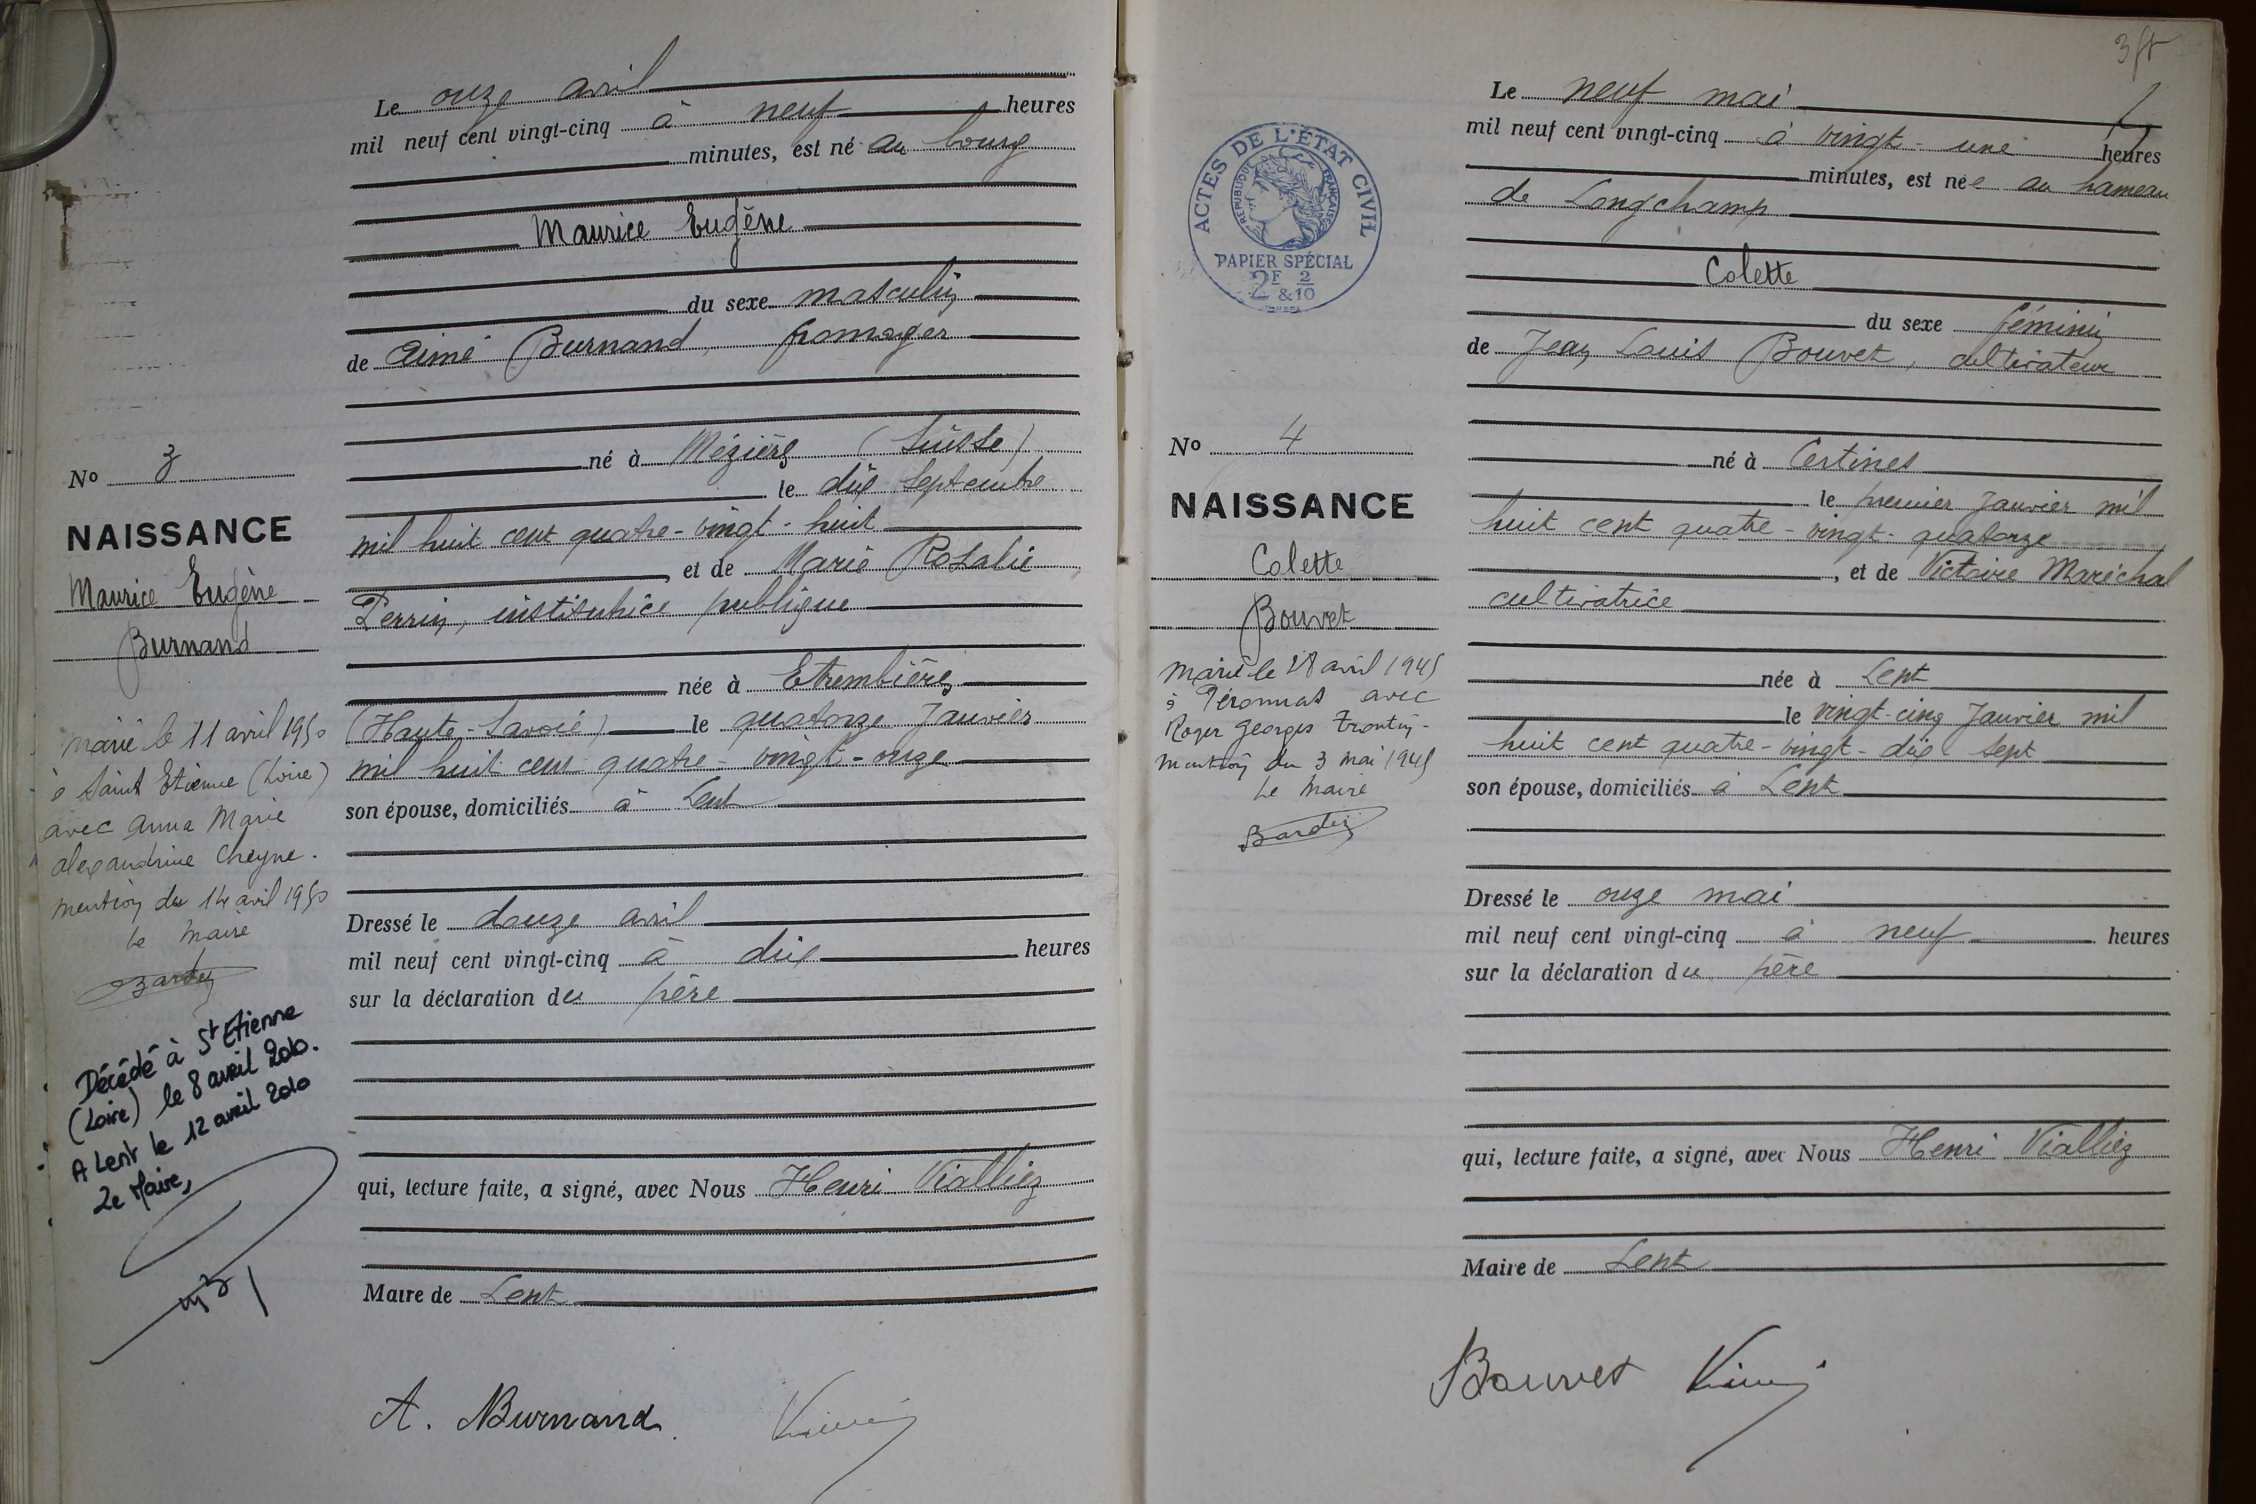 Le onze avril
mil neuf cent vingt-cinq à neuf heures
minutes, est né au bourg
Maurice Eugène
du sexe masculin
de Aimé Burnand, fromager
né à Mézières (Suisse)
le dix septembre
mil huit cent quatre-vingt-huit
, et de Marie Rosalie
Perrin, institutrice publique
née à Etrembières
(Haute-Savoie) le quatorze Janvier
mil huit cent quatre-vingt-onze
son épouse, domiciliés à Lent
Dressé le douze avril
mil neuf cent vingt-cinq à dix heures
sur la déclaration du père
qui, lecture faite, a signé, avec Nous Henri Vialliez
Maire de Lent
A. Burnand
No 3
NAISSANCE
Maurice Eugène
Burnand
Marié le 11 avril 1950
à Saint Etienne (Loire)
avec Anna Marie
Alexandrine Cheyne.
Mention du 14 avril 1950
Le Maire
Décédé à St Etienne
(Loire) le 8 avril 2010.
A Lent le 12 avril 2010
Le Maire,
3
ACTES DE L'ÉTAT CIVIL
REPUBLIQUE FRANÇAISE
PAPIER SPÉCIAL
2F & 2/10
Le neuf mai
mil neuf cent vingt-cinq à vingt-une heures
minutes, est née au hameau
de Longchamp
Colette
du sexe féminin
de Jean Louis Bouvet, cultivateur
né à Certines
le premier Janvier mil
huit cent quatre-vingt-quatorze
, et de Victoire Maréchal
cultivatrice
née à Lent
le vingt-cinq Janvier mil
huit cent quatre-vingt-dix sept
son épouse, domiciliés à Lent
Dressé le onze mai
mil neuf cent vingt-cinq à neuf heures
sur la déclaration du père
qui, lecture faite, a signé, avec Nous Henri Vialliez
Maire de Lent
Bouvet
No 4
NAISSANCE
Colette
Bouvet
Marié le 28 avril 1945
à Péronnas avec
Roger Georges
Mention du 3 mai 1945
Le Maire